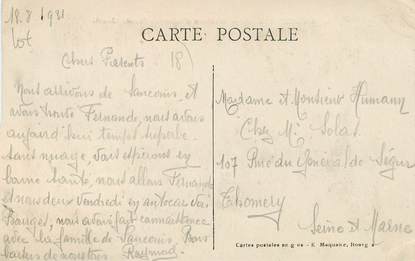 18.8 1931
CARTE POSTALE
Chers Parents 18)
Nous arrivons de Sancoins, et
avons trouvé Fernande, nous avons
aujourd'hui temps superbe
sans nuage,
bonne santé, nous allons Fernande
et nous deux vendredi en autocar
Bourges, nous avons fait connaissance
avec la famille de Sancoins, Bons
baisers de nous trois
Madame et Monsieur Humann
Chez Mr Solas
107 Rue du General de Ségur
Thomery
Seine et Marne
Cartes postales en gros - E. Maquaire, Bourges